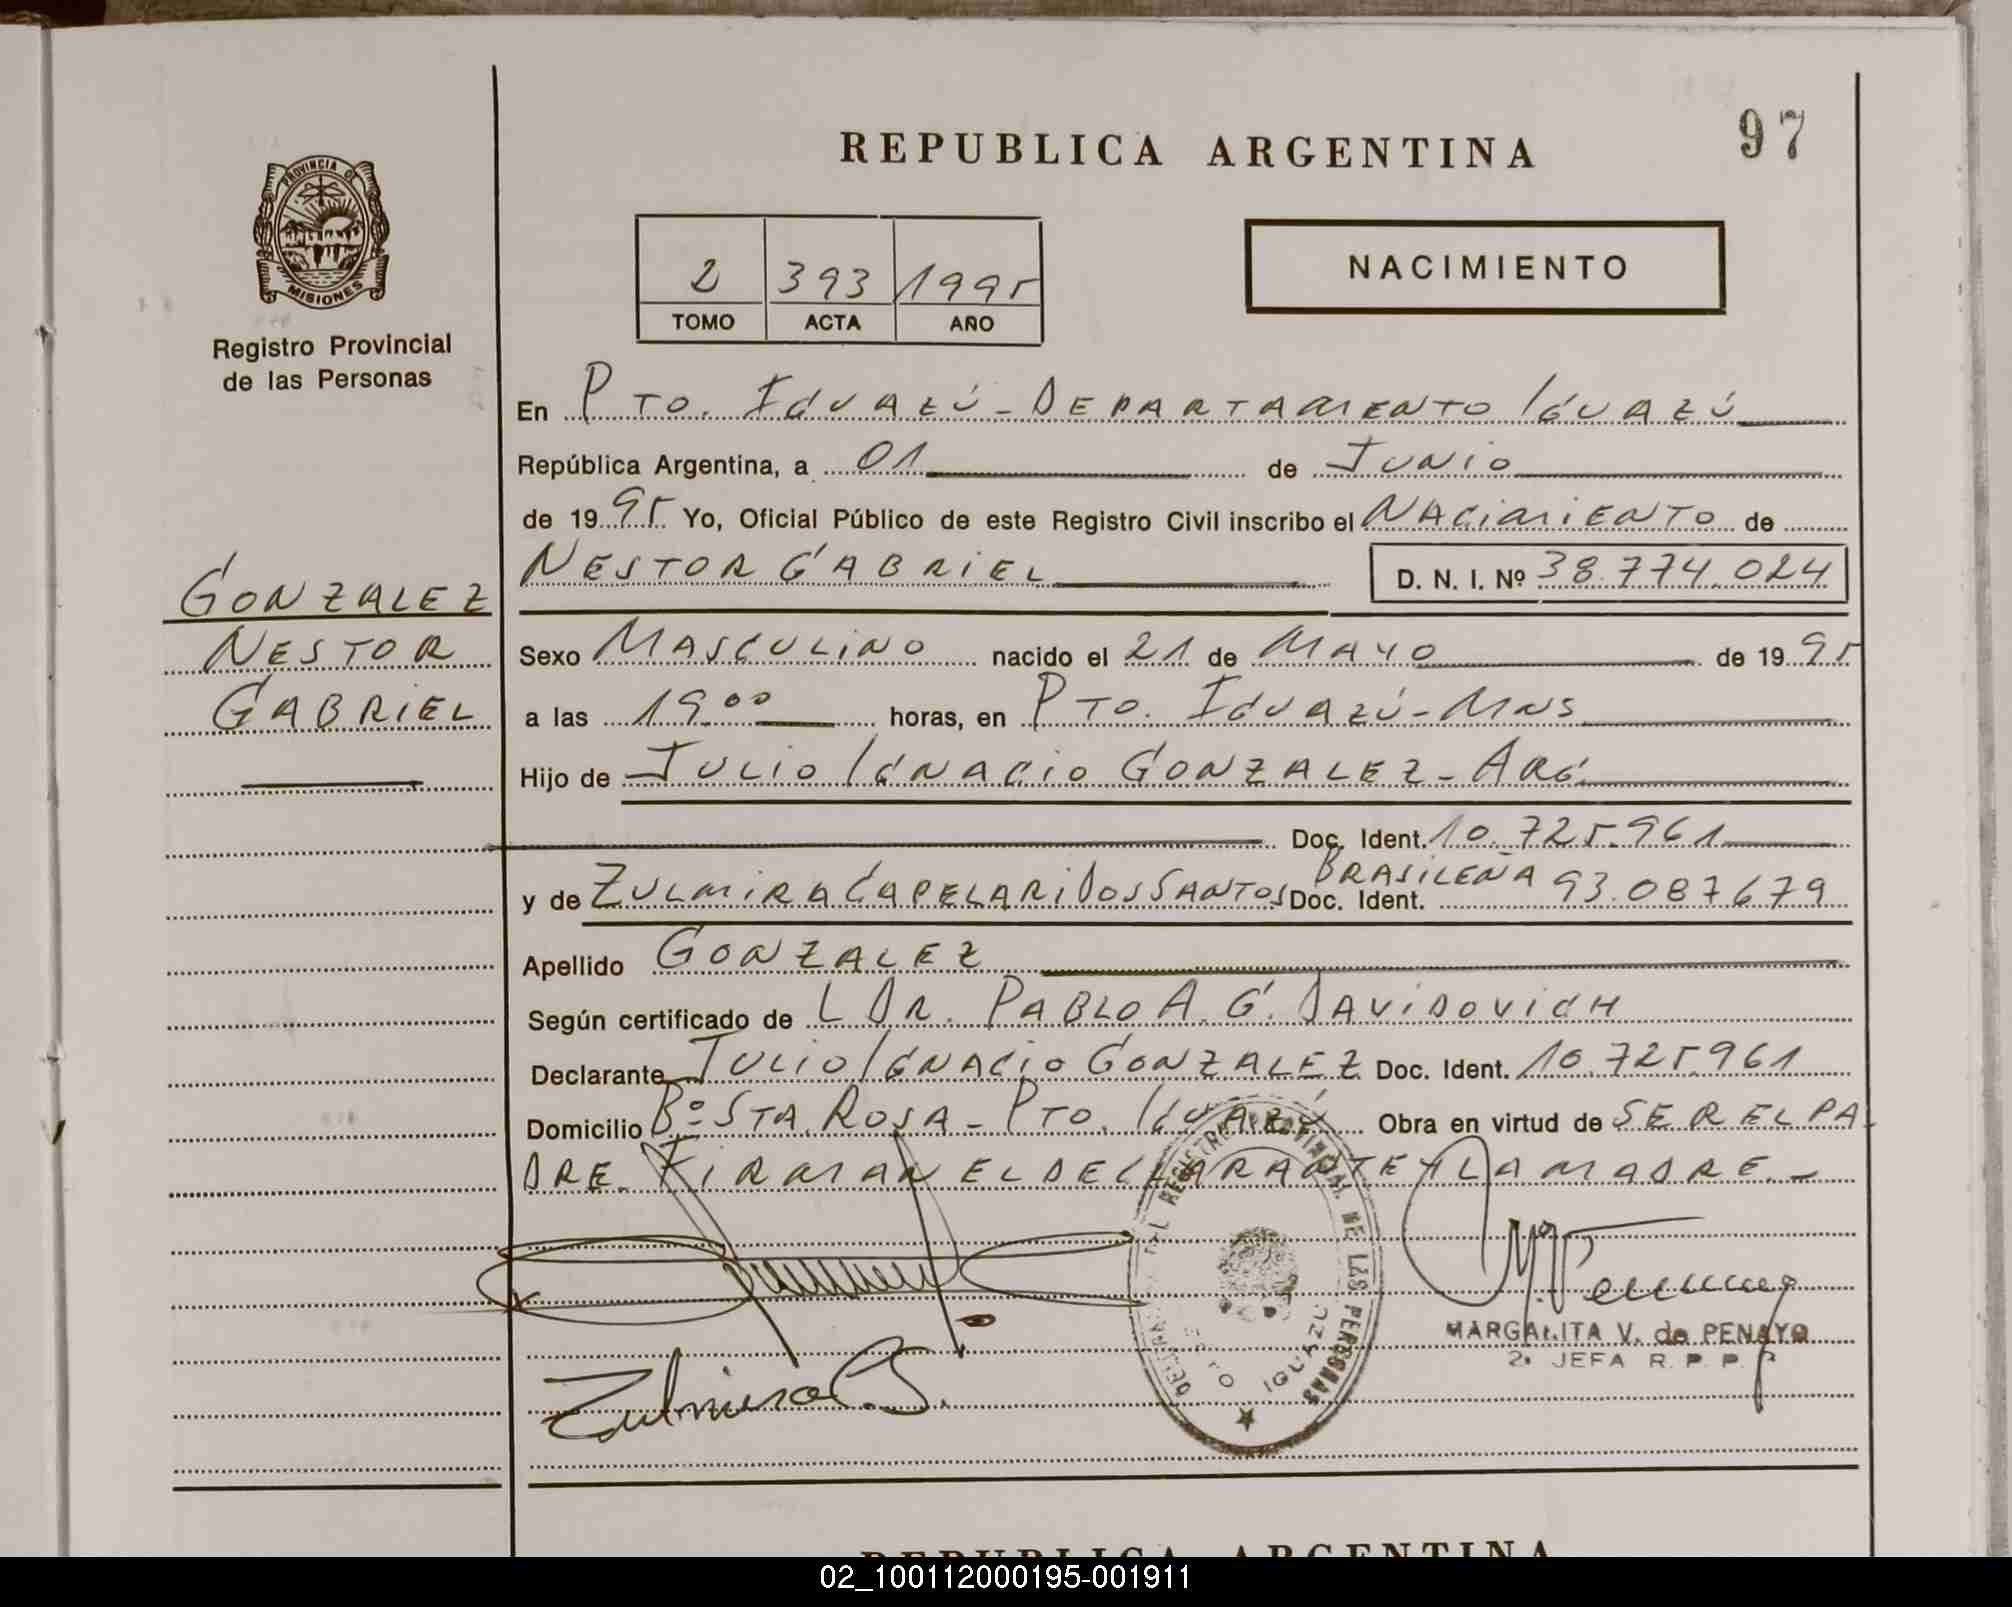 REPUBLICA ARGENTINA
97
PROVINCIA DE
MISIONES
Registro Provincial
de las Personas
2 393 1995
TOMO ACTA AÑO
NACIMIENTO
En PTO. IGUAZÚ - DEPARTAMENTO IGUAZÚ
República Argentina, a 01 de JUNIO
de 1995 Yo, Oficial Público de este Registro Civil inscribo el NACIMIENTO de
NESTOR GABRIEL D. N. I. Nº 38.774.024
GONZALEZ
NESTOR
GABRIEL
Sexo MASCULINO nacido el 21 de MAYO de 1995
a las 19ºº horas, en PTO. IGUAZÚ - MNS
Hijo de JULIO IGNACIO GONZALEZ - ARG.
Doc. Ident. 10.725.961
y de ZULMIRA CAPELARI DOS SANTOS BRASILEÑA Doc. Ident. 93.087679
Apellido GONZALEZ
Según certificado de L DR. PABLO A. G. DAVIDOVICH
Declarante JULIO IGNACIO GONZALEZ Doc. Ident. 10.725.961
Domicilio Bº STA. ROSA - PTO. IGUAZÚ Obra en virtud de SER EL PA
DRE. FIRMAN EL DECLARANTE Y LA MADRE. -
REGISTRO PROVINCIAL DE LAS PERSONAS
IGUAZU
Zulmira C. S.
MARGARITA V. de PENAYO
2ª JEFA R. P. P.
REPUBLICA ARGENTINA
02_100112000195-001911